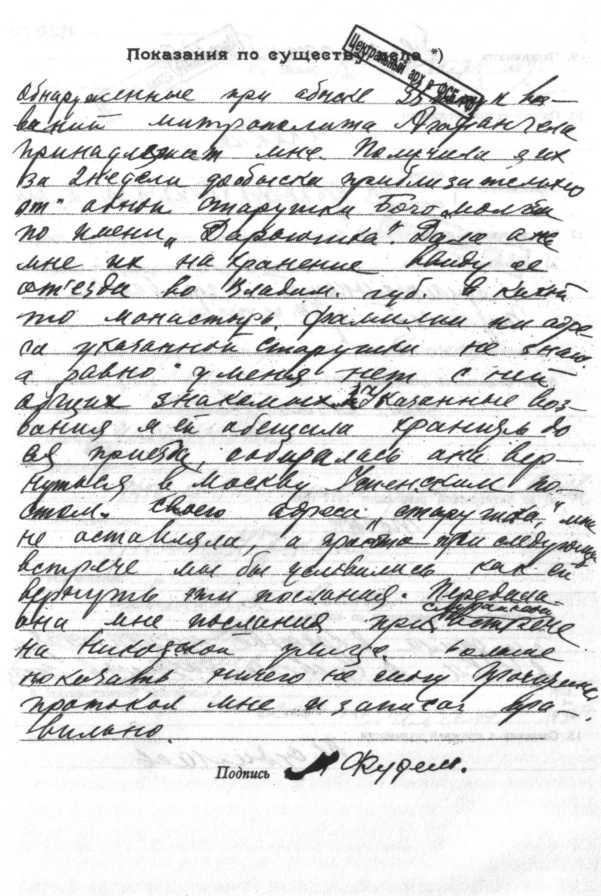 Показания по существу дела *)
Центральный арх в ФСБ
обнаруженные при обыске 25 воз-
ваний митрополита Агафангела
принадлежат мне. Получила я их
за 2 недели до обыска приблизительно
от одной старушки Богомолки
по имени „Дарьюшка". Дала она
мне их на хранение ввиду ее
отъезда во Владим. губ. в какой
то монастырь. фамилии ни адре
са указанной старушки не знаю
а равно у меня нет с ней
общих знакомых. Указанные воз-
вания я ей обещала хранить до
ея приезда, собиралась она вер-
нуться в Москву Успенским по
стом. Своего адреса старушка, мне
не оставляла, а просто при следующей
встрече мы бы условились как ей
вернуть эти послания. Передала
она мне послания при случайной встрече
на Никольской улице. Больше
показать ничего не могу Прочитан
протокол мне и записан пра-
вильно.
Подпись